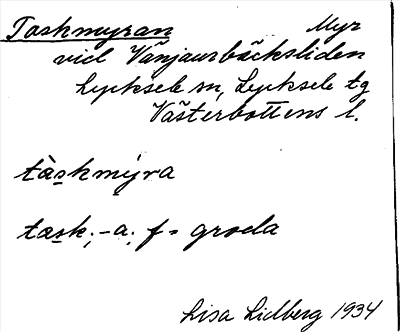 Taskmyran Myr
vid Vänjaurbäcksliden
Lycksele sn, Lycksele tg
Västerbottens l.
tàskmýra
task, -a, f = groda
Lisa Lidberg 1934